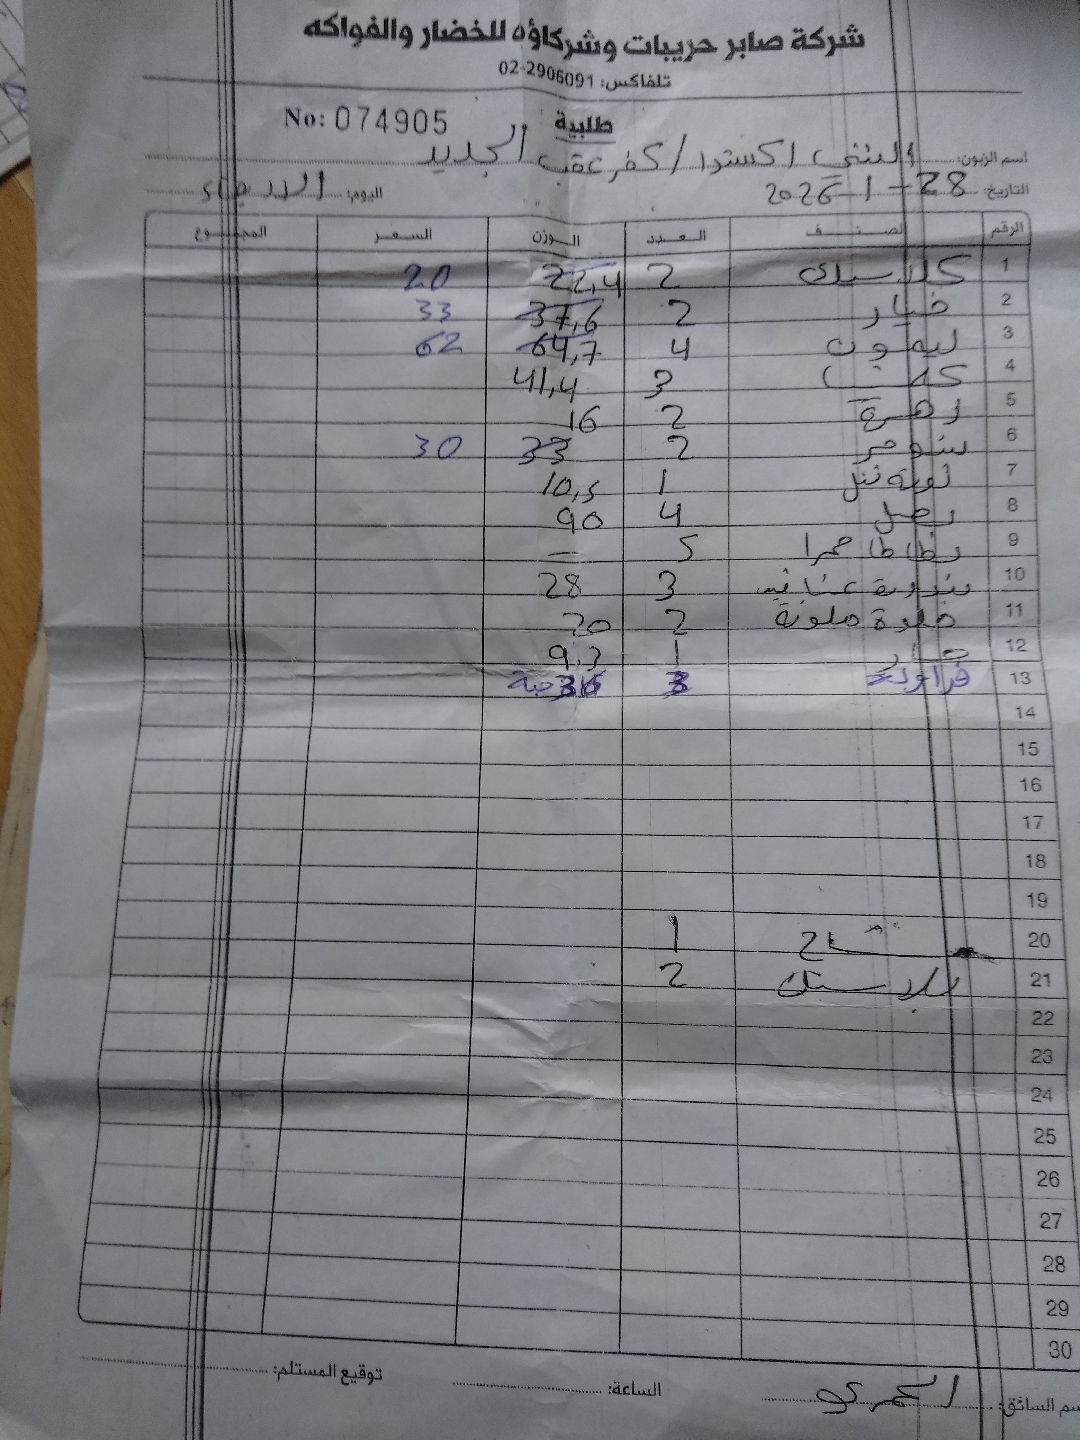 شركة صابر حريبات وشركاؤه للخضار والفواكه
تلفاكس: 02-2906091
No: 074905
طلبية
اسم الزبون: البني اكسترا / كفر عقب الجديد
التاريخ: 28-1-2026 اليوم: الاربعاء
الرقم الصنف العدد الوزن السعر المجموع
1 كلاسيك 2 22,4 20
2 خيار 2 37,6 33
3 ليمون 4 64,7 62
4 3 41,4
5 زهرة 2 16
6 شومر 2 33 30
7 1 10,5
8 بصل 4 90
9 بطاطا حمرا 5 =
10 بندورة عناقيد 3 28
11 حلوة ملونة 2 20
12 حار 1 9,3
13 فراولة 3 36 حبة
14
15
16
17
18
19
20 1
21 بلاستك 2
22
23
24
25
26
27
28
29
30
اسم السائق: العمري الساعة: توقيع المستلم: